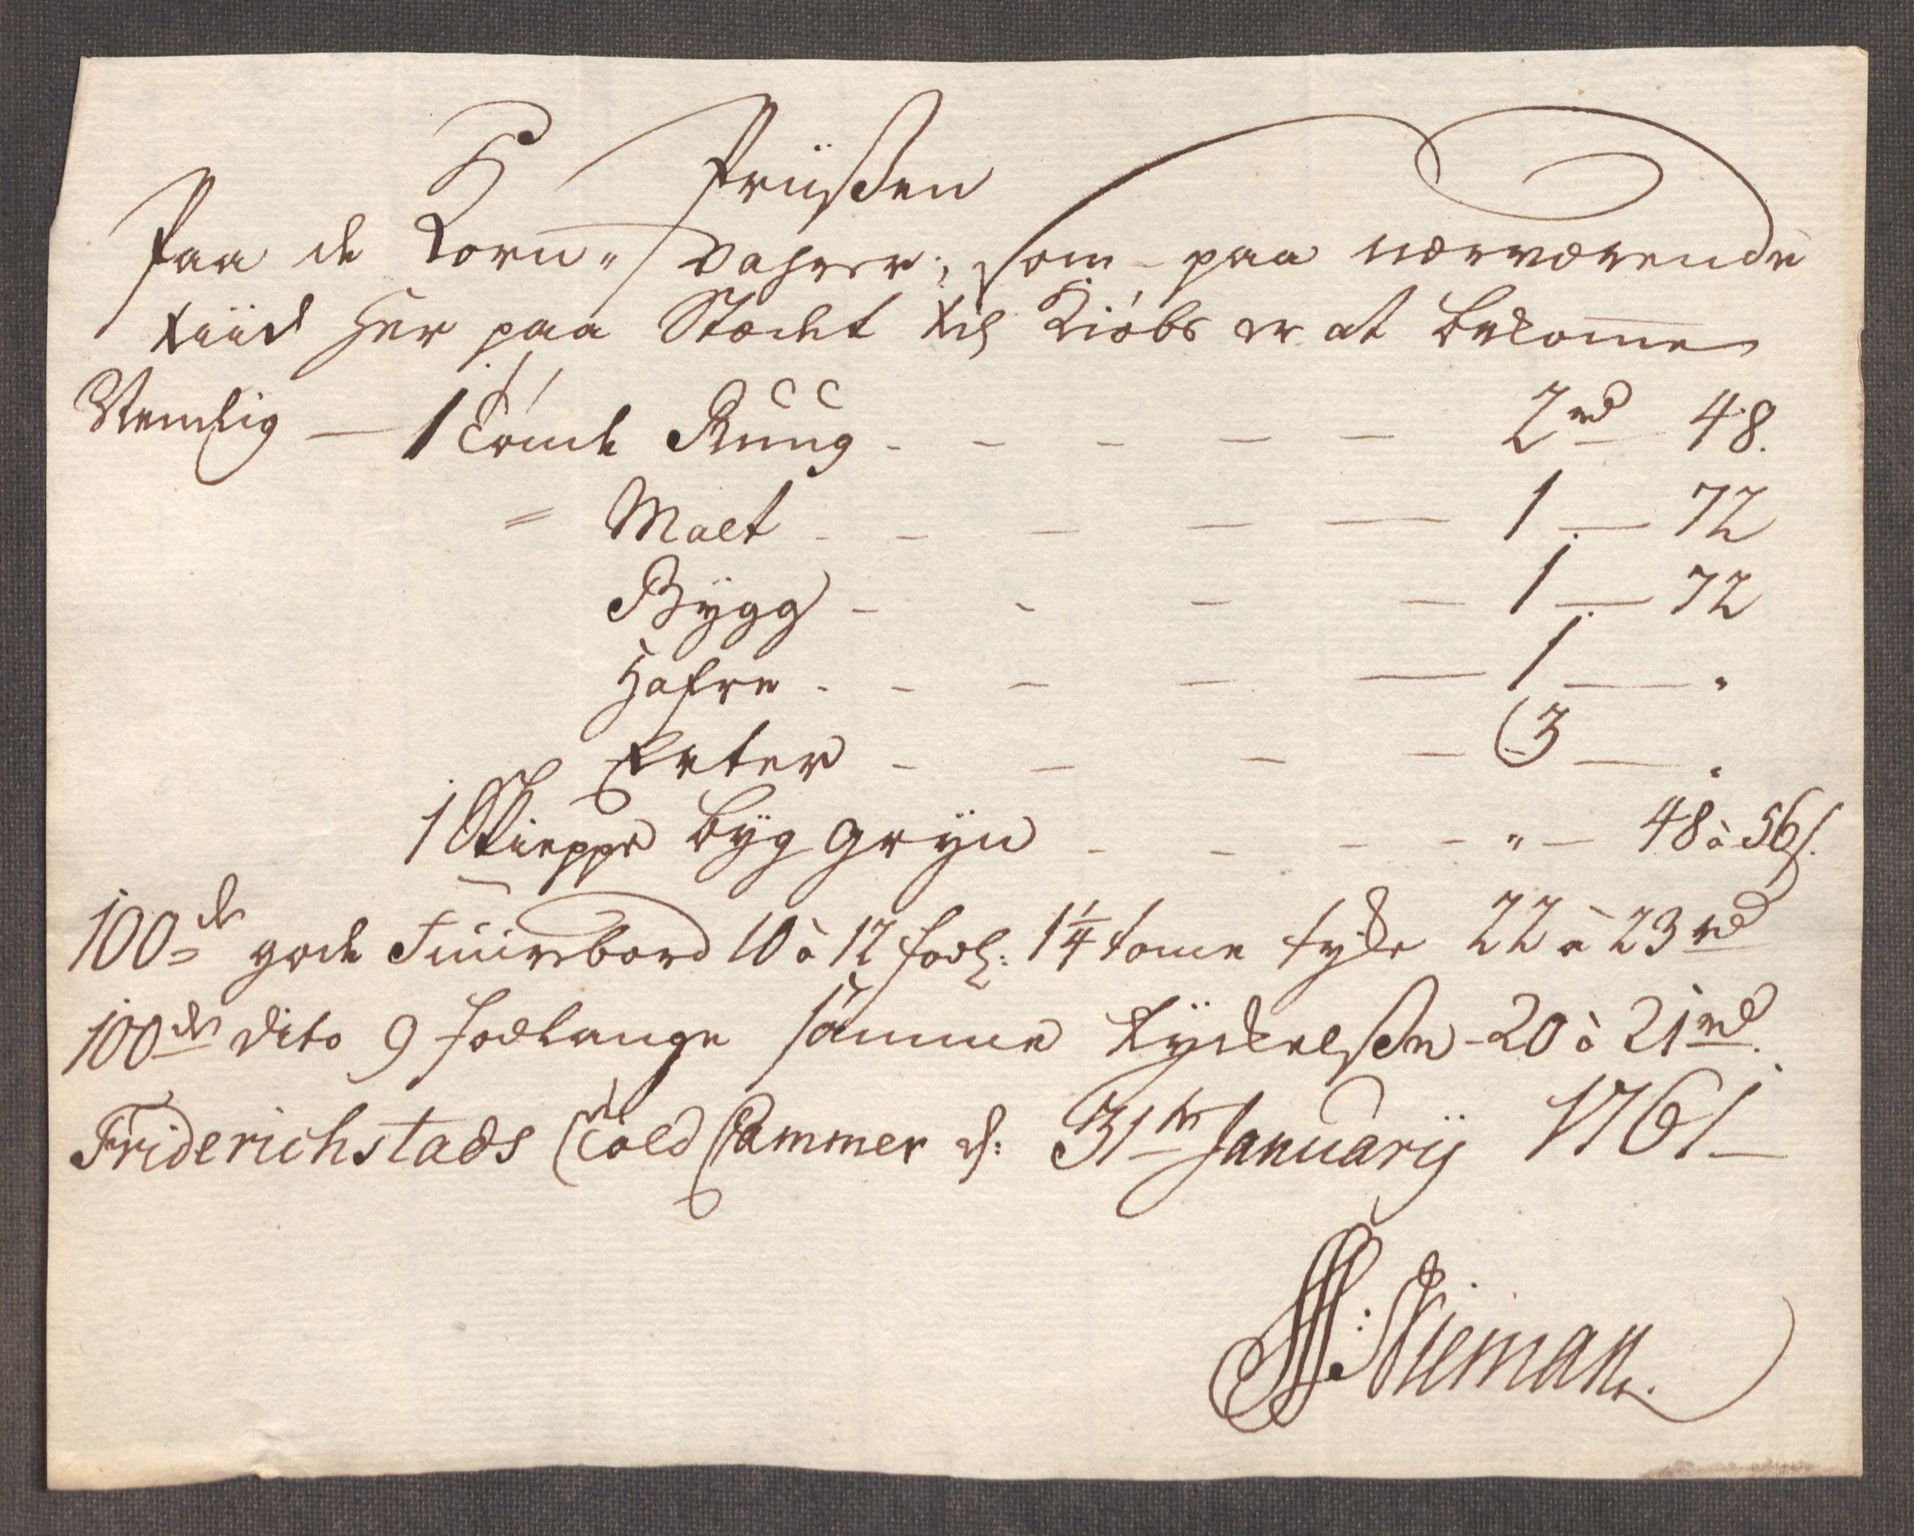 Priisßen
Paa de Korn„ Vahrer, som paa nærværende
tiid her paa Stædet til Kiøbs er at bekomme
Nemlig — 1 Tönde Rüüg - - - - - 2 rd 48.
" Malt - - - - - 1 — 72
Bÿgg - - - - 1 — 72
Hafre - - - - - 1 — "
Erter - - - - 3 — "
1 Skieppe byg grÿn - - - - " — 48 à 56 s.
100de gode Fuürebord 10 à 12 fod l: 1¼ tome tyke 22 à 23 rd
100de dito 9 fodlange samme tÿckelsße - 20 à 21 rd.
Friderichstads Told Cammer d: 31te Januarij 1761
Nieman